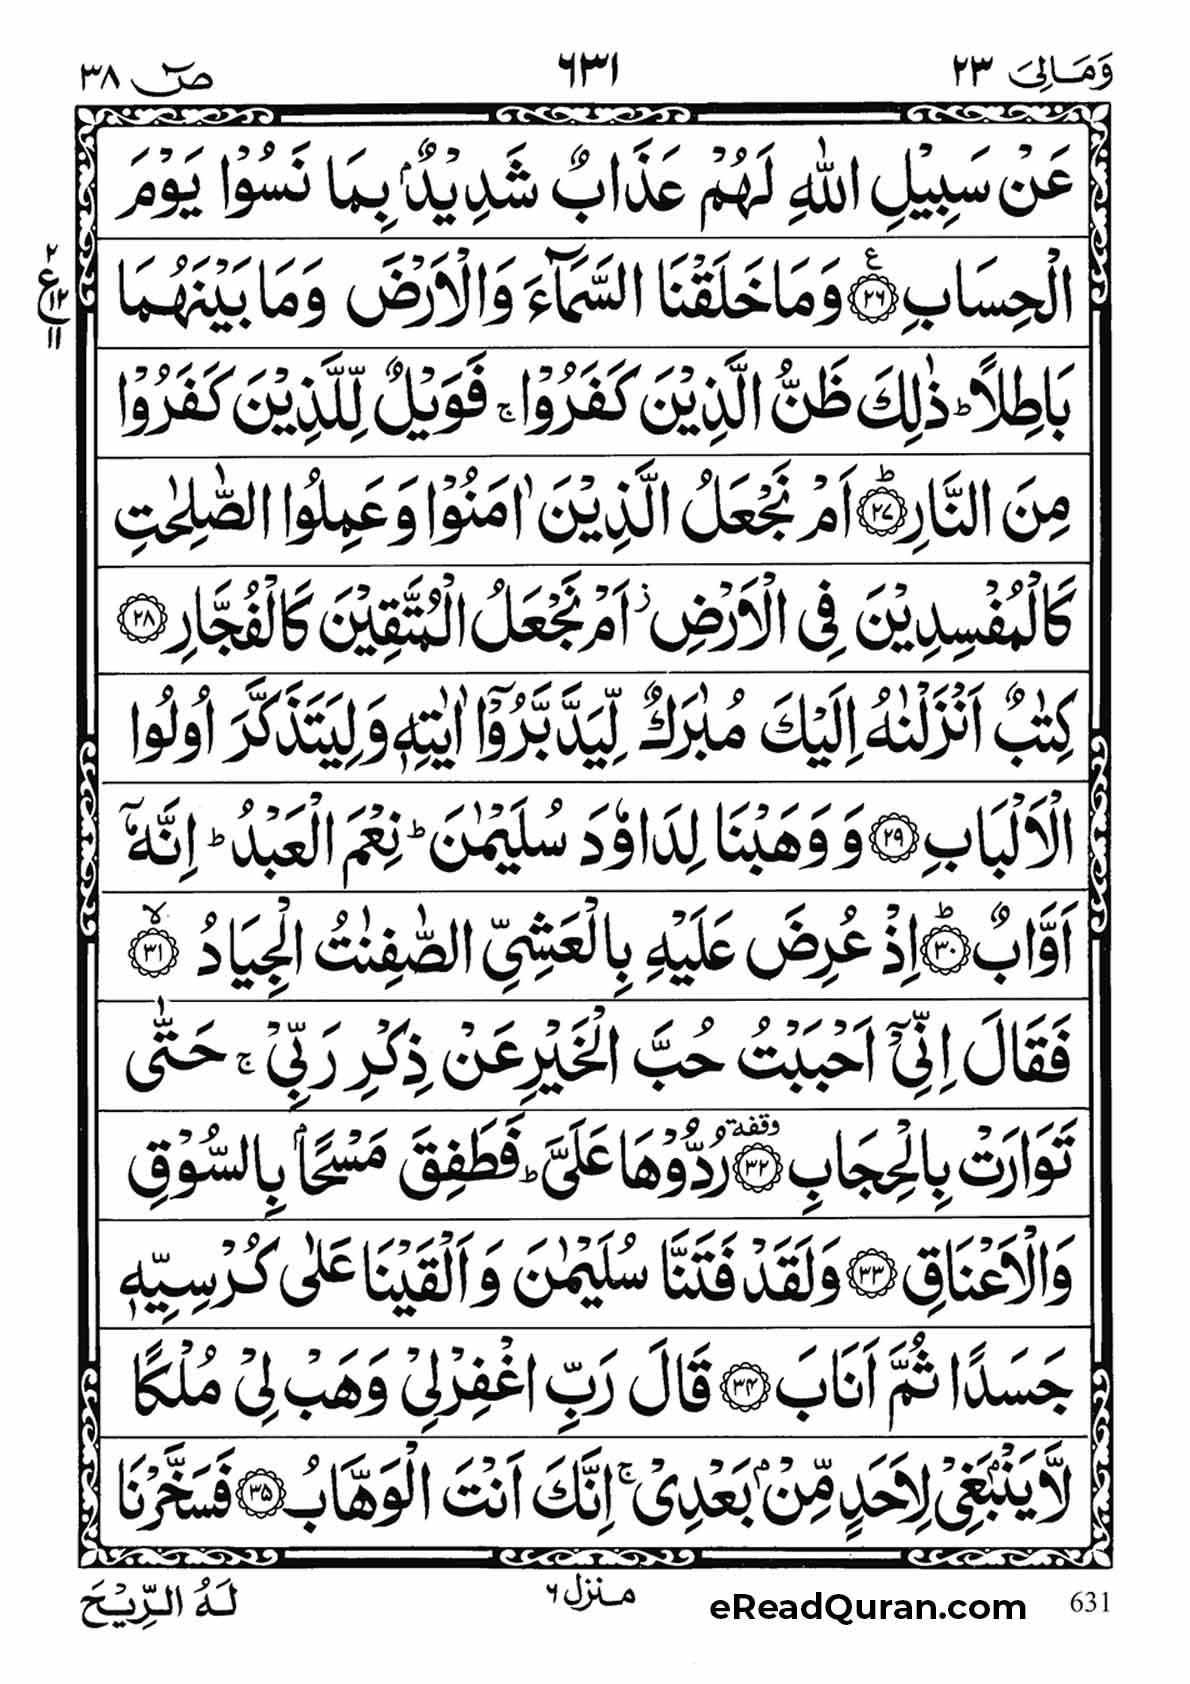 وَمَالِیَ ٢٣
٦٣١
صٓ ٣٨
عَنْ سَبِیْلِ اللّٰهِ لَهُمْ عَذَابٌ شَدِیْدٌۢ بِمَا نَسُوْا یَوْمَ
الْحِسَابِ ﴿٢٦﴾ ع وَمَا خَلَقْنَا السَّمَآءَ وَالْاَرْضَ وَمَا بَیْنَهُمَا
٢
ع
١٢
١١
بَاطِلًا ؕ ذٰلِكَ ظَنُّ الَّذِیْنَ كَفَرُوْا ۚ فَوَیْلٌ لِّلَّذِیْنَ كَفَرُوْا
مِنَ النَّارِ ﴿٢٧﴾ ؕ اَمْ نَجْعَلُ الَّذِیْنَ اٰمَنُوْا وَعَمِلُوا الصّٰلِحٰتِ
كَالْمُفْسِدِیْنَ فِی الْاَرْضِ ؗ اَمْ نَجْعَلُ الْمُتَّقِیْنَ كَالْفُجَّارِ ﴿٢٨﴾
كِتٰبٌ اَنْزَلْنٰهُ اِلَیْكَ مُبٰرَكٌ لِّیَدَّبَّرُوْۤا اٰیٰتِهٖ وَلِیَتَذَكَّرَ اُولُوا
الْاَلْبَابِ ﴿٢٩﴾ وَوَهَبْنَا لِدَاوٗدَ سُلَیْمٰنَ ؕ نِعْمَ الْعَبْدُ ؕ اِنَّهٗۤ
اَوَّابٌ ﴿٣٠﴾ ؕ اِذْ عُرِضَ عَلَیْهِ بِالْعَشِیِّ الصّٰفِنٰتُ الْجِیَادُ ﴿٣١﴾ ۙ
فَقَالَ اِنِّیْۤ اَحْبَبْتُ حُبَّ الْخَیْرِ عَنْ ذِكْرِ رَبِّیْ ۚ حَتّٰی
تَوَارَتْ بِالْحِجَابِ ﴿٣٢﴾ وقفة رُدُّوْهَا عَلَیَّ ؕ فَطَفِقَ مَسْحًۢا بِالسُّوْقِ
وَالْاَعْنَاقِ ﴿٣٣﴾ وَلَقَدْ فَتَنَّا سُلَیْمٰنَ وَاَلْقَیْنَا عَلٰی كُرْسِیِّهٖ
جَسَدًا ثُمَّ اَنَابَ ﴿٣٤﴾ قَالَ رَبِّ اغْفِرْلِیْ وَهَبْ لِیْ مُلْكًا
لَّا یَنْۢبَغِیْ لِاَحَدٍ مِّنْۢ بَعْدِیْ ۚ اِنَّكَ اَنْتَ الْوَهَّابُ ﴿٣٥﴾ فَسَخَّرْنَا
لَهُ الرِّیْحَ
منزل ٦
eReadQuran.com
631